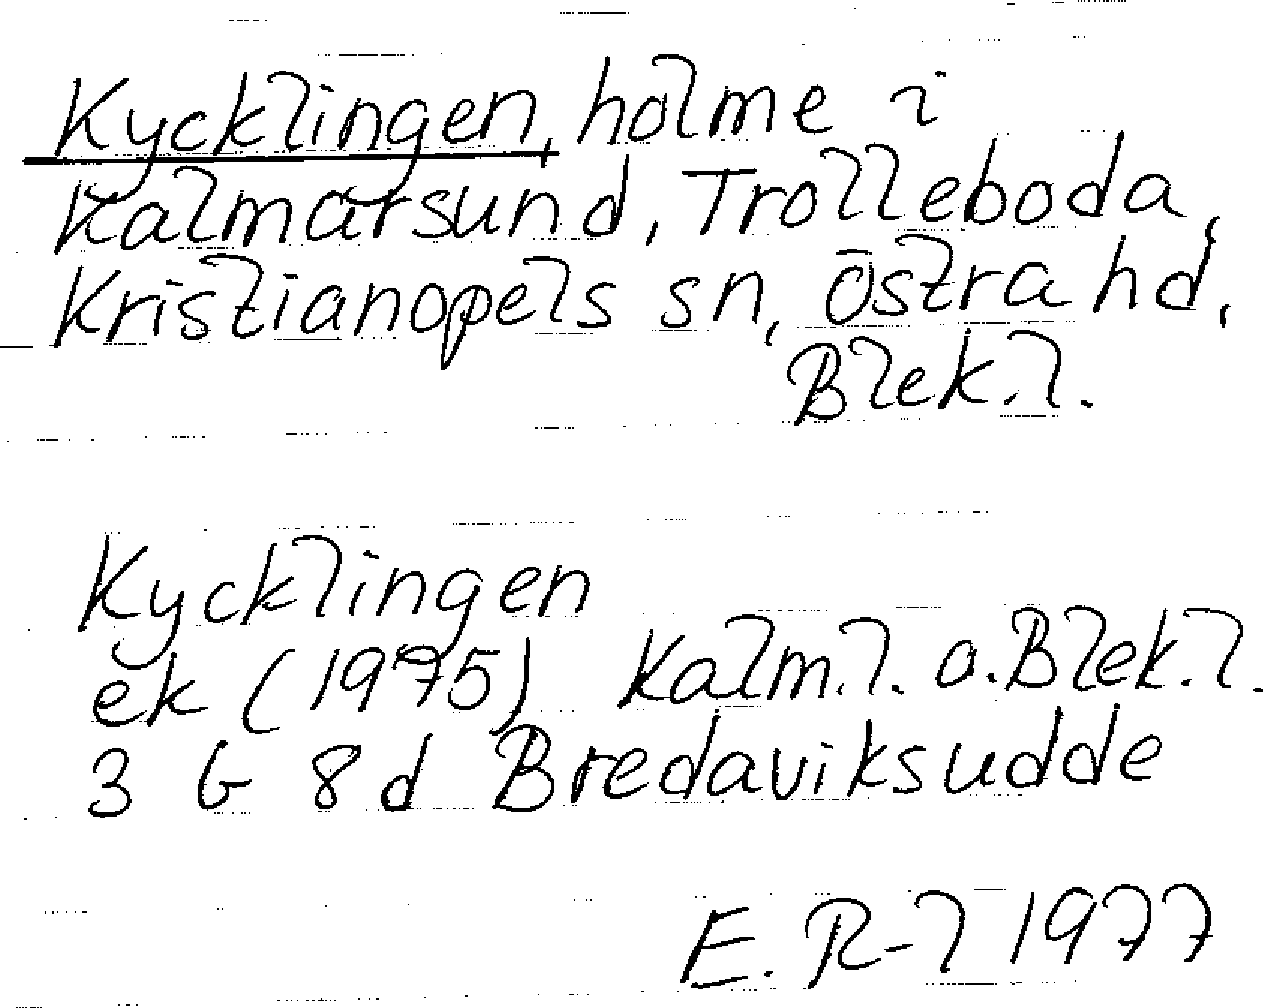 Kycklingen, holme i
Kalmarsund, Trolleboda,
Kristianopels sn, Östra hd,
Blek.l.
Kycklingen
ek (1975) Kalm.l. o. Blek.l.
3 G 8d Bredaviksudde
E. R-l 1977